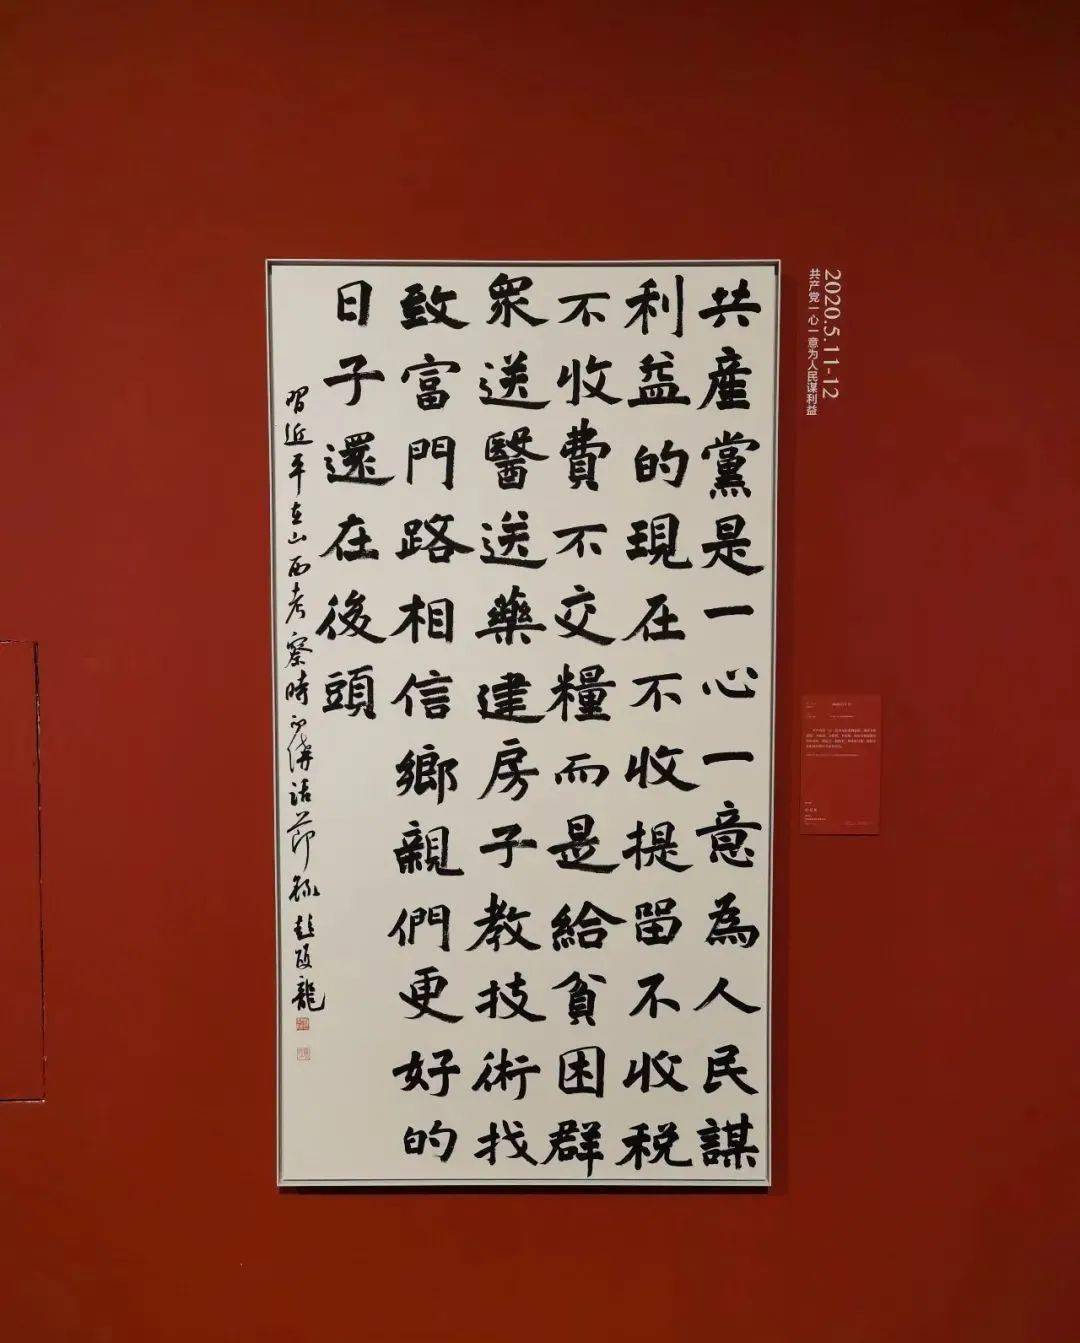 共產黨是一心一意為人民謀
利益的現在不收提留不收税
不收費不交糧而是給貧困群
衆送醫送藥建房子教技術找
致富門路相信鄉親們更好的
日子還在後頭
習近平在山西考察時的講話節録
2020.5.11-12
共产党一心一意为人民谋利益